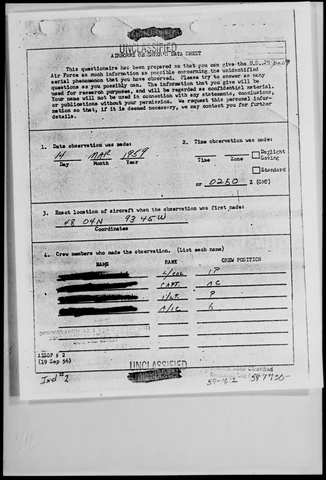 UNCLASSIFIED
AIRBORNE OBSERVER'S DATA SHEET
This questionaire has been prepared so that you can give the U.S.
Air Force as much information as possible concerning the unidentified
aerial phenomenon that you have observed. Please try to answer as many
questions as you possibly can. The information you give will be
used for research purposes, and will be regarded as confidential material.
Your name will not be used in connection with any statements, conclusions,
or publications without your permission. We request this personal infor-
mation so that, if it is deemed necessary, we may contact you for further
details.
1. Date observation was made:
14 MAR 1959
Day Month Year
2. Time observation was made:
Time Zone
Daylight
Saving
Standard
or 0250 Z (GMT)
3. Exact location of aircraft when the observation was first made:
48 04N 93 45W
Coordinates
4. Crew members who made the observation. (List each name)
NAME RANK CREW POSITION
L/COL IP
CAPT. AC
1/LT. P
A/1C G
AISOP # 2
(19 Sep 56)
Incl # 2
UNCLASSIFIED